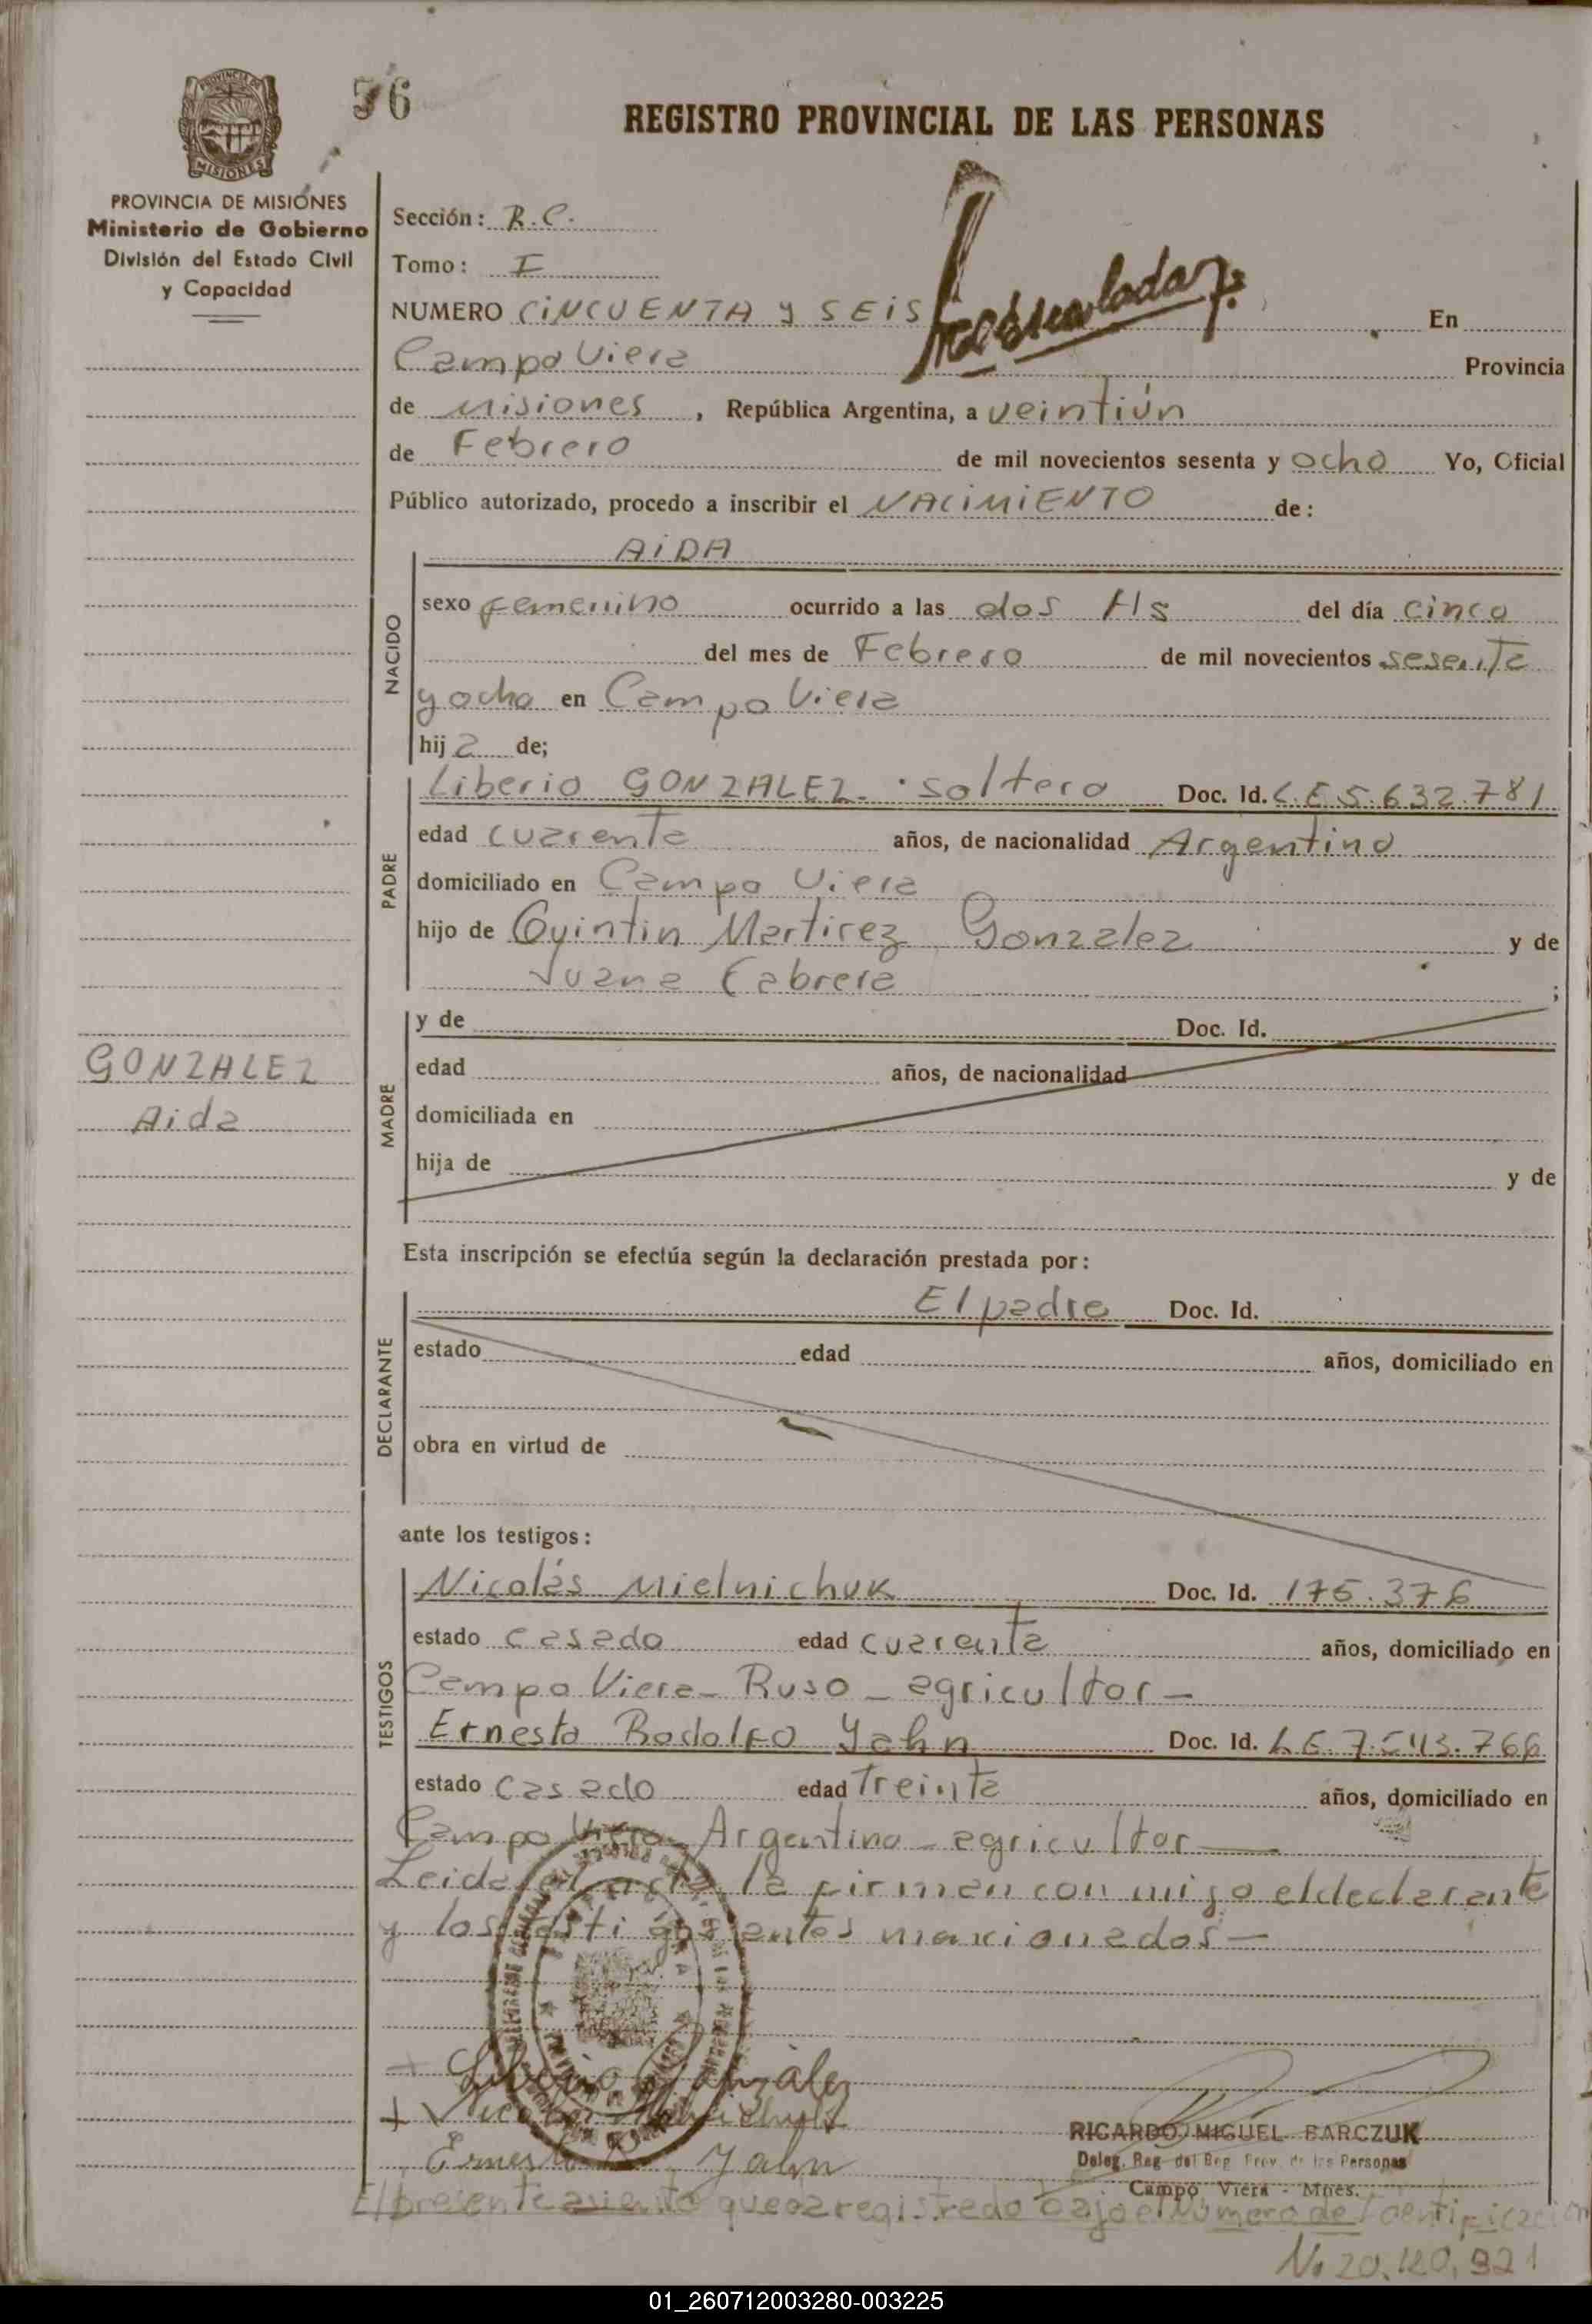 PROVINCIA DE
MISIONES
56
REGISTRO PROVINCIAL DE LAS PERSONAS
PROVINCIA DE MISIONES
Ministerio de Gobierno
División del Estado Civil
y Capacidad
Sección: R.C.
Tomo: I
NUMERO CINCUENTA y SEIS En
Campo Viera Provincia
de Misiones, República Argentina, a veintiún
de Febrero de mil novecientos sesenta y ocho Yo, Oficial
Público autorizado, procedo a inscribir el NACIMIENTO de:
AIDA
NACIDO
sexo femenino ocurrido a las dos Hs del día cinco
del mes de Febrero de mil novecientos sesenta
y ocho en Campo Viera
hija de;
PADRE
Liberio GONZALEZ. soltero Doc. Id. L.E 5.632.781
edad cuarenta años, de nacionalidad Argentino
domiciliado en Campo Viera
hijo de Quintin Martirez Gonzalez y de
Juana Cabrera ;
MADRE
y de Doc. Id.
edad años, de nacionalidad
domiciliada en
hija de y de
GONZALEZ
Aida
Esta inscripción se efectúa según la declaración prestada por:
DECLARANTE
El padre Doc. Id.
estado edad años, domiciliado en
obra en virtud de
ante los testigos:
TESTIGOS
Nicolás Mielnichuk Doc. Id. 175.376
estado casado edad cuarenta años, domiciliado en
Campo Viera - Ruso - agricultor -
Ernesto Rodolfo Yahn Doc. Id. L.E 7.543.766
estado casado edad Treinta años, domiciliado en
Campo Viera Argentino - agricultor -
Leida el acta la firman con migo el declarante
y los testigos antes mencionados -
Liberio González
Nicolas Mielnichuk
Ernesto R. Yahn
RICARDO MIGUEL BARCZUK
Deleg. Reg. del Reg. Prov. de las Personas
Campo Viera - Mnes.
El presente asiento queda registrado bajo el Número de Identificación
No 20.120.921
01_260712003280-003225